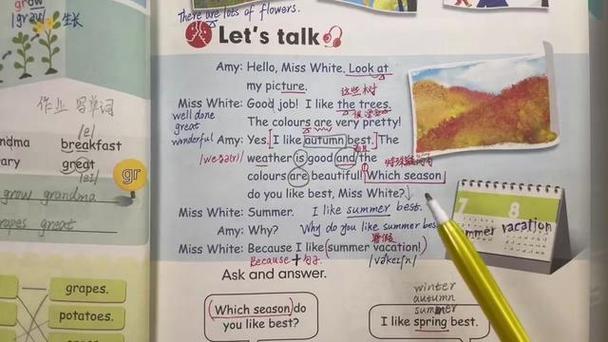 grow
grow 生长
作业 写单词
/e/
ndma breakfast
ary great
/eɪ/
gr
grow grandma
rapes great
grapes.
potatoes.
There are lots of flowers.
Let's talk
Amy: Hello, Miss White. Look at
my picture.
这些树
Miss White: Good job! I like the trees.
well done
great
wonderful
The colours are very pretty!
Amy: Yes. I like autumn best. The
weather is good and the
colours are beautiful! Which season
do you like best, Miss White?
Miss White: Summer. I like summer best.
Amy: Why? Why do you like summer best?
暑假
Miss White: Because I like (summer vacation!)
Because + 句子
7 8
summer vacation
Ask and answer.
(Which season) do
you like best?
winter
autumn
summer
I like spring best.